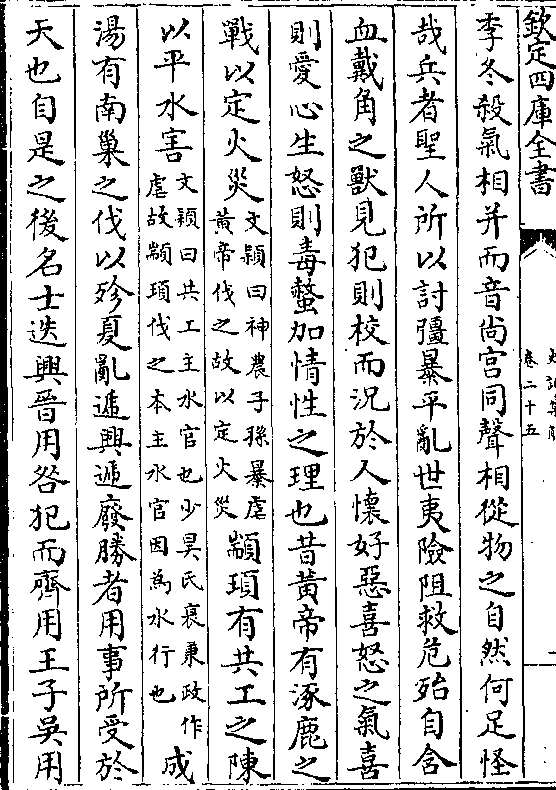 欽定四庫全書
卷二十五
季冬殺氣相并而音尚宫同聲相從物之自然何足怪
哉兵者聖人所以討彊暴平亂世夷險阻救危殆自含
血戴角之獸見犯則校而况於人懷好惡喜怒之氣喜
則愛心生怒則毒螫加情性之理也昔黄帝有涿鹿之
戰以定火災文穎曰神農子孫暴虐黄帝伐之故以定火災顓頊有共工之陳
以平水害文穎曰共工主水官也少昊氏衰秉政作虐故顓頊伐之本主水官因為水行也成
湯有南巢之伐以殄夏亂遞興遞廢勝者用事所受於
天也自是之後名士迭興晉用咎犯而齊用王子吳用